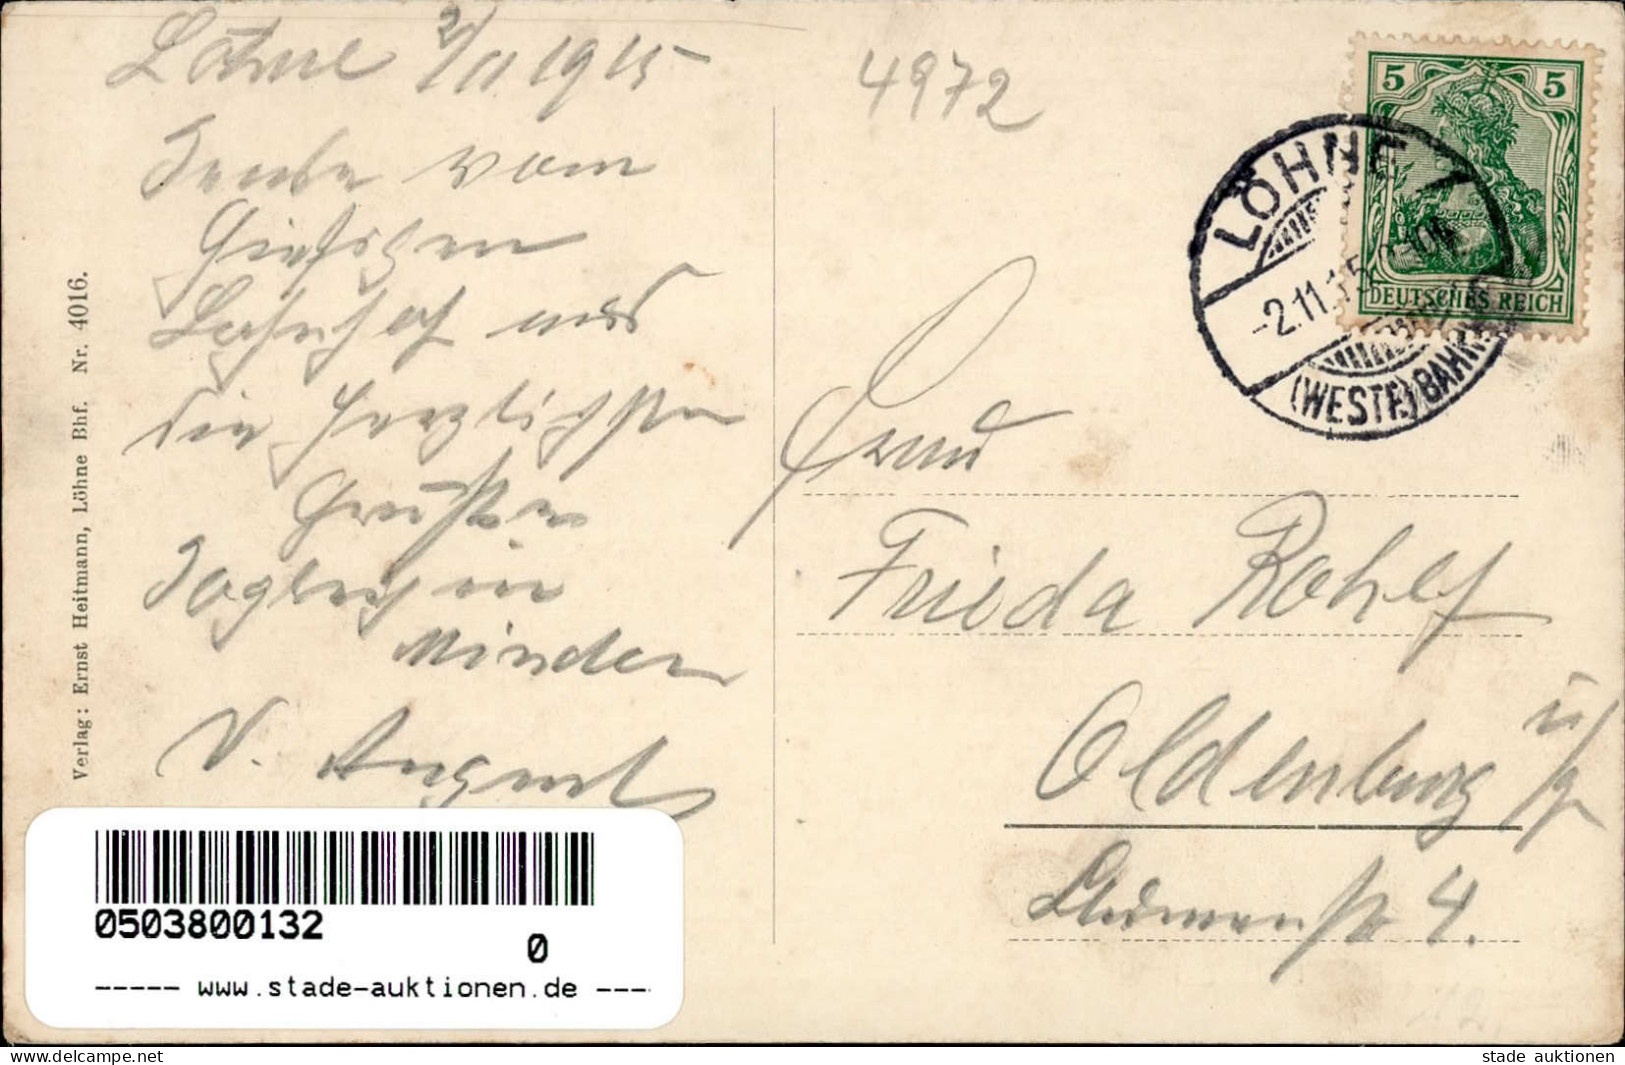 Löhne 2/11 1915
vom
Hiesigen
Bahnhof und
die herzlichsten
Grüßen
in
Minden
V. August
Verlag: Ernst Heitmann, Löhne Bhf. Nr. 4016.
4972
5 5
DEUTSCHES REICH
LÖHNE
-2.11.15
(WESTF.) BAHNHOF
Frau
Frieda Rohlf
Oldenburg i/Gr
Blumenstr 4.
0503800132
0
----- www.stade-auktionen.de ---
stade auktionen
www.delcampe.net